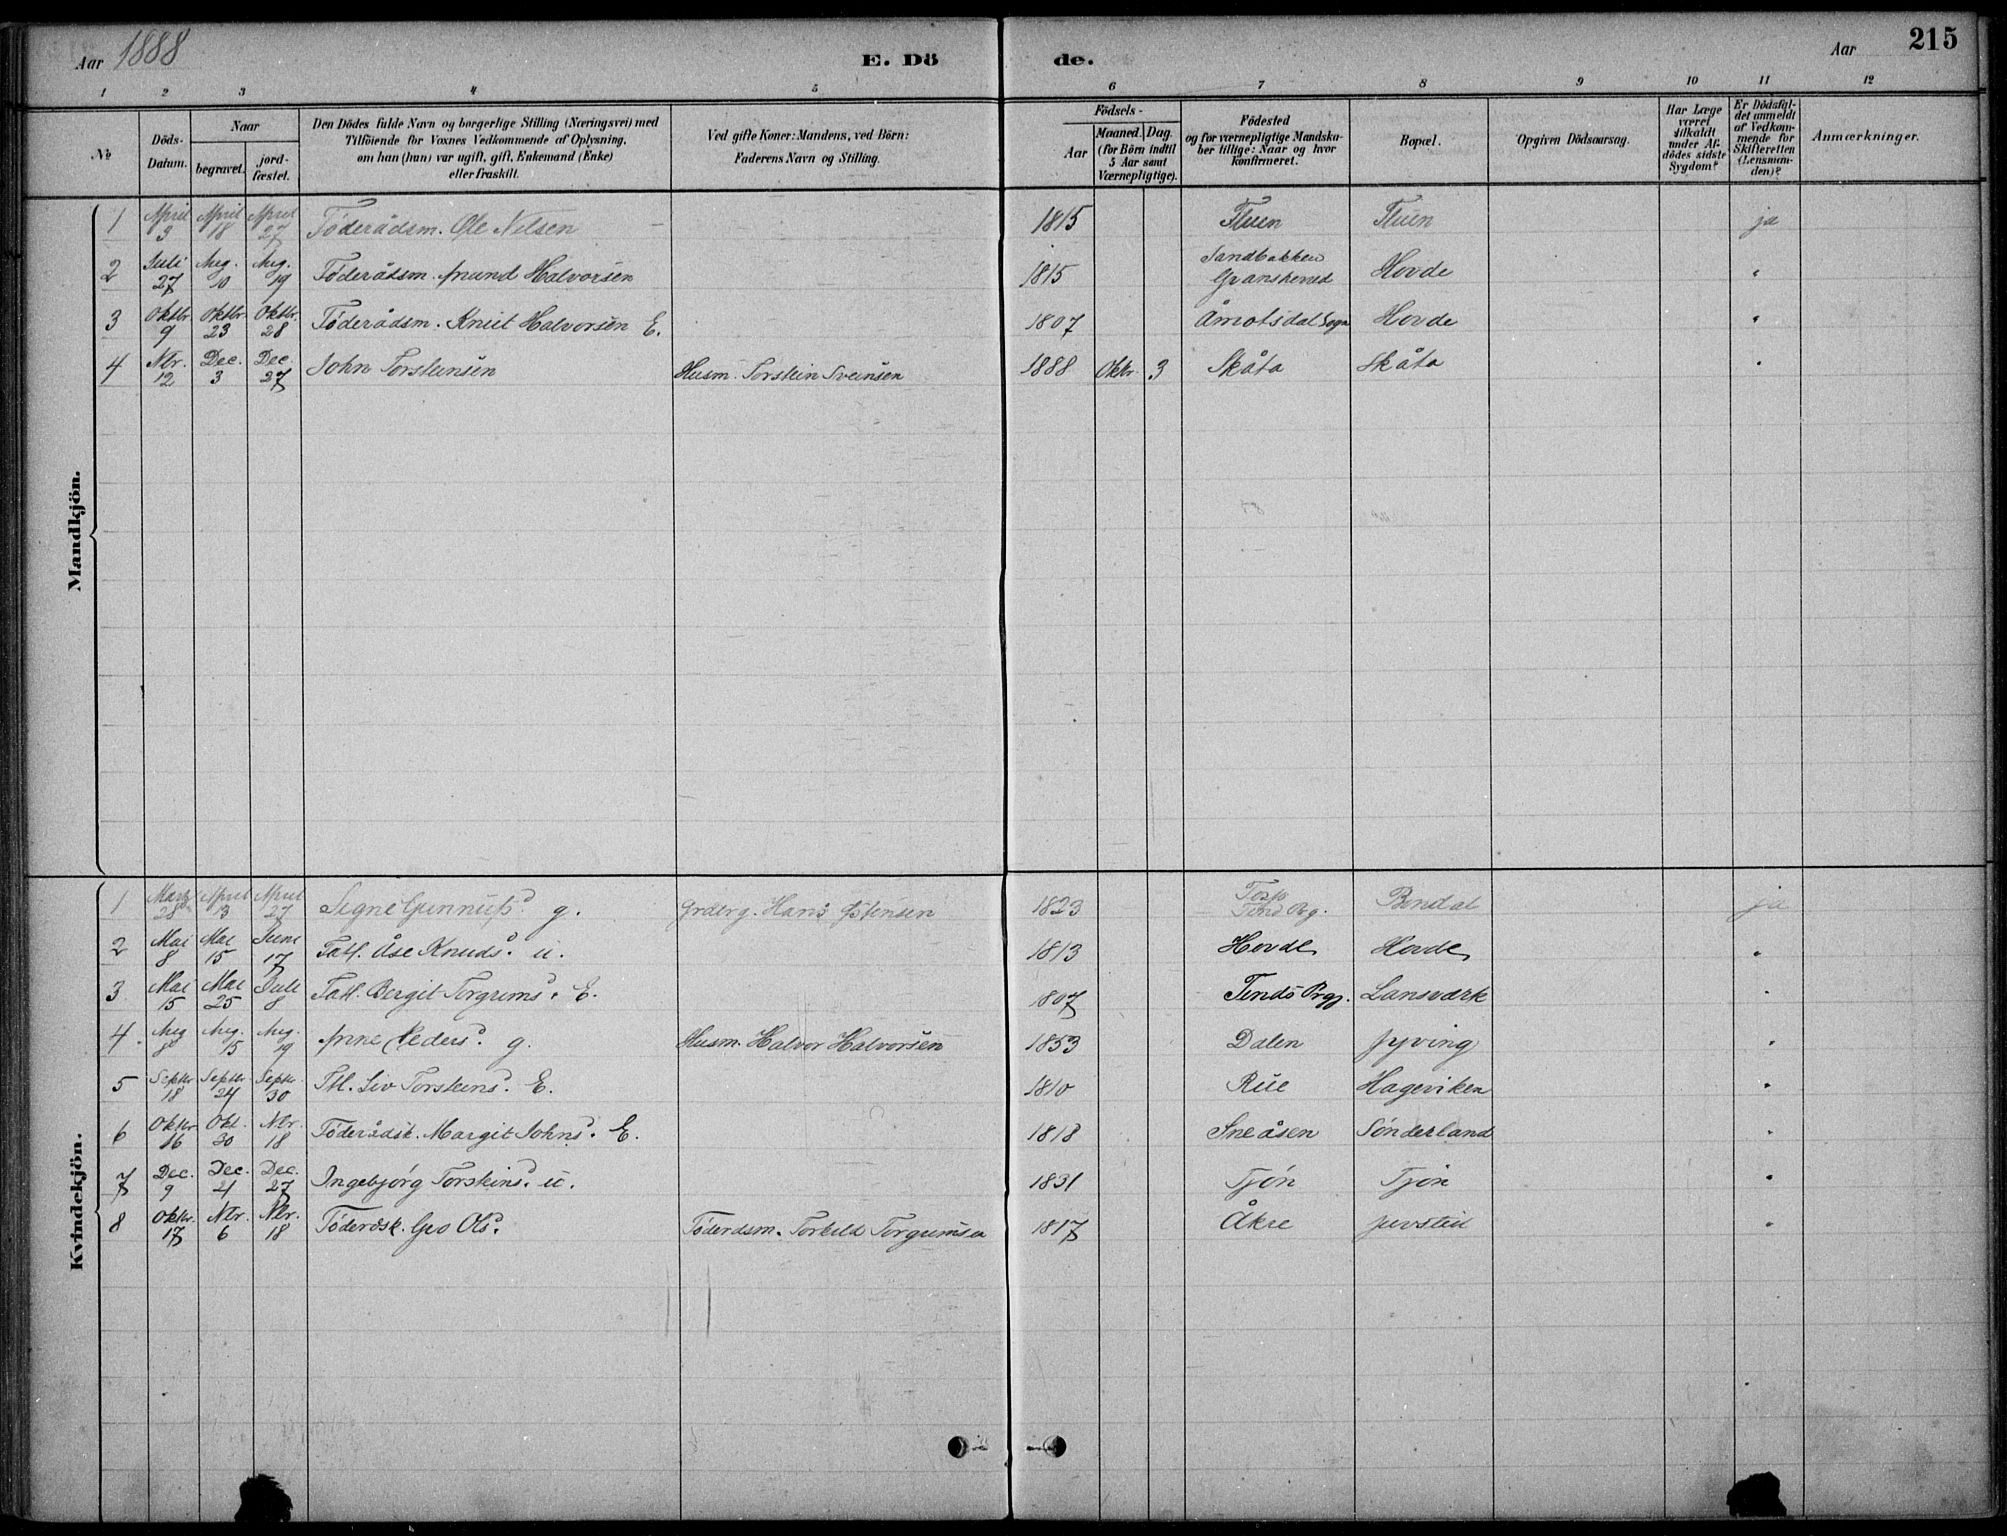 Aar 1888 E. Dö de. Aar 215
1 2 3 4 5 6 7 8 9 10 11 12
№
Döds-Datum.
Naar
begravet.
jord-fæstet.
Den Dödes fulde Navn og borgerlige Stilling (Næringsvei) med
Tilföiende for Voxnes Vedkommende af Oplysning,
om han (hun) var ugift, gift, Enkemand (Enke)
eller fraskilt.
Ved gifte Koner: Mandens, ved Börn:
Faderens Navn og Stilling.
Födsels-
Aar
Maaned. Dag.
(for Börn indtil
5 Aar samt
Værnepligtige).
Födested
og for værnepligtige Mandska-
ber tillige: Naar og hvor
konfirmeret.
Bopæl.
Opgiven Dödsaarsag.
Har Læge
været
tilkaldt
under Af-
dödes sidste
Sygdom?
Er Dödsfal-
det anmeldt
af Vedkom-
mende for
Skifteretten
(Lensman-
den)?
Anmærkninger.
Mandkjön.
1 April 3 April 18 April 27 Föderådsm. Ole Nelsen 1815 Fluen Fluen ja
2 Juli 27 Aug. 10 Aug. 19 Föderådsm. Anund Halvorsen 1815 Sandbakken Gransherred Hovde "
3 Oktbr. 9 Oktbr. 23 Oktbr. 28 Föderådsm. Knut Halvorsen E. 1807 Åmotsdal Sogn Hovde "
4 Nbr. 12 Dec. 3 Dec. 27 John Torsteinsen Husm. Torstein Sveinsen 1888 Oktbr. 3 Skåta Skåta "
Kvindekjön.
1 Marts 28 April 13 April 27 Signe Gunnufsd. g. Grdbrg. Hans Østensen 1823 Tind Prg. Bondal ja
2 Mai 8 Mai 15 Juni 17 Fatl. Åse Knudsd. u. 1813 Hovde Hovde "
3 Mai 15 Mai 25 Juli 8 Fatl. Bergit Torgrimsd. E. 1807 Tinds Prgj. Lansværk "
4 Aug 8 Aug. 15 Aug. 19 Anne Pedersd. g. Husm. Halvor Halvorsen 1853 Dalen Jyving "
5 Septbr. 18 Septbr. 24 Septbr. 30 Ftl. Liv Torsteinsd. E. 1810 Rue Hageviken "
6 Oktbr. 16 Okt. 30 Nbr. 18 Föderådsk. Margit Johnsd. E. 1818 Sneåsen Sönderland "
7 Dec. 9 Dec. 21 Dec. 27 Ingebjörg Torsteinsd. u. 1831 Tjön Tjön "
8 Oktbr. 17 Nbr. 6 Nbr. 18 Föderdsk. Gro Olsd. Föderdsm. Torkild Torgrimsen 1817 Åkre "